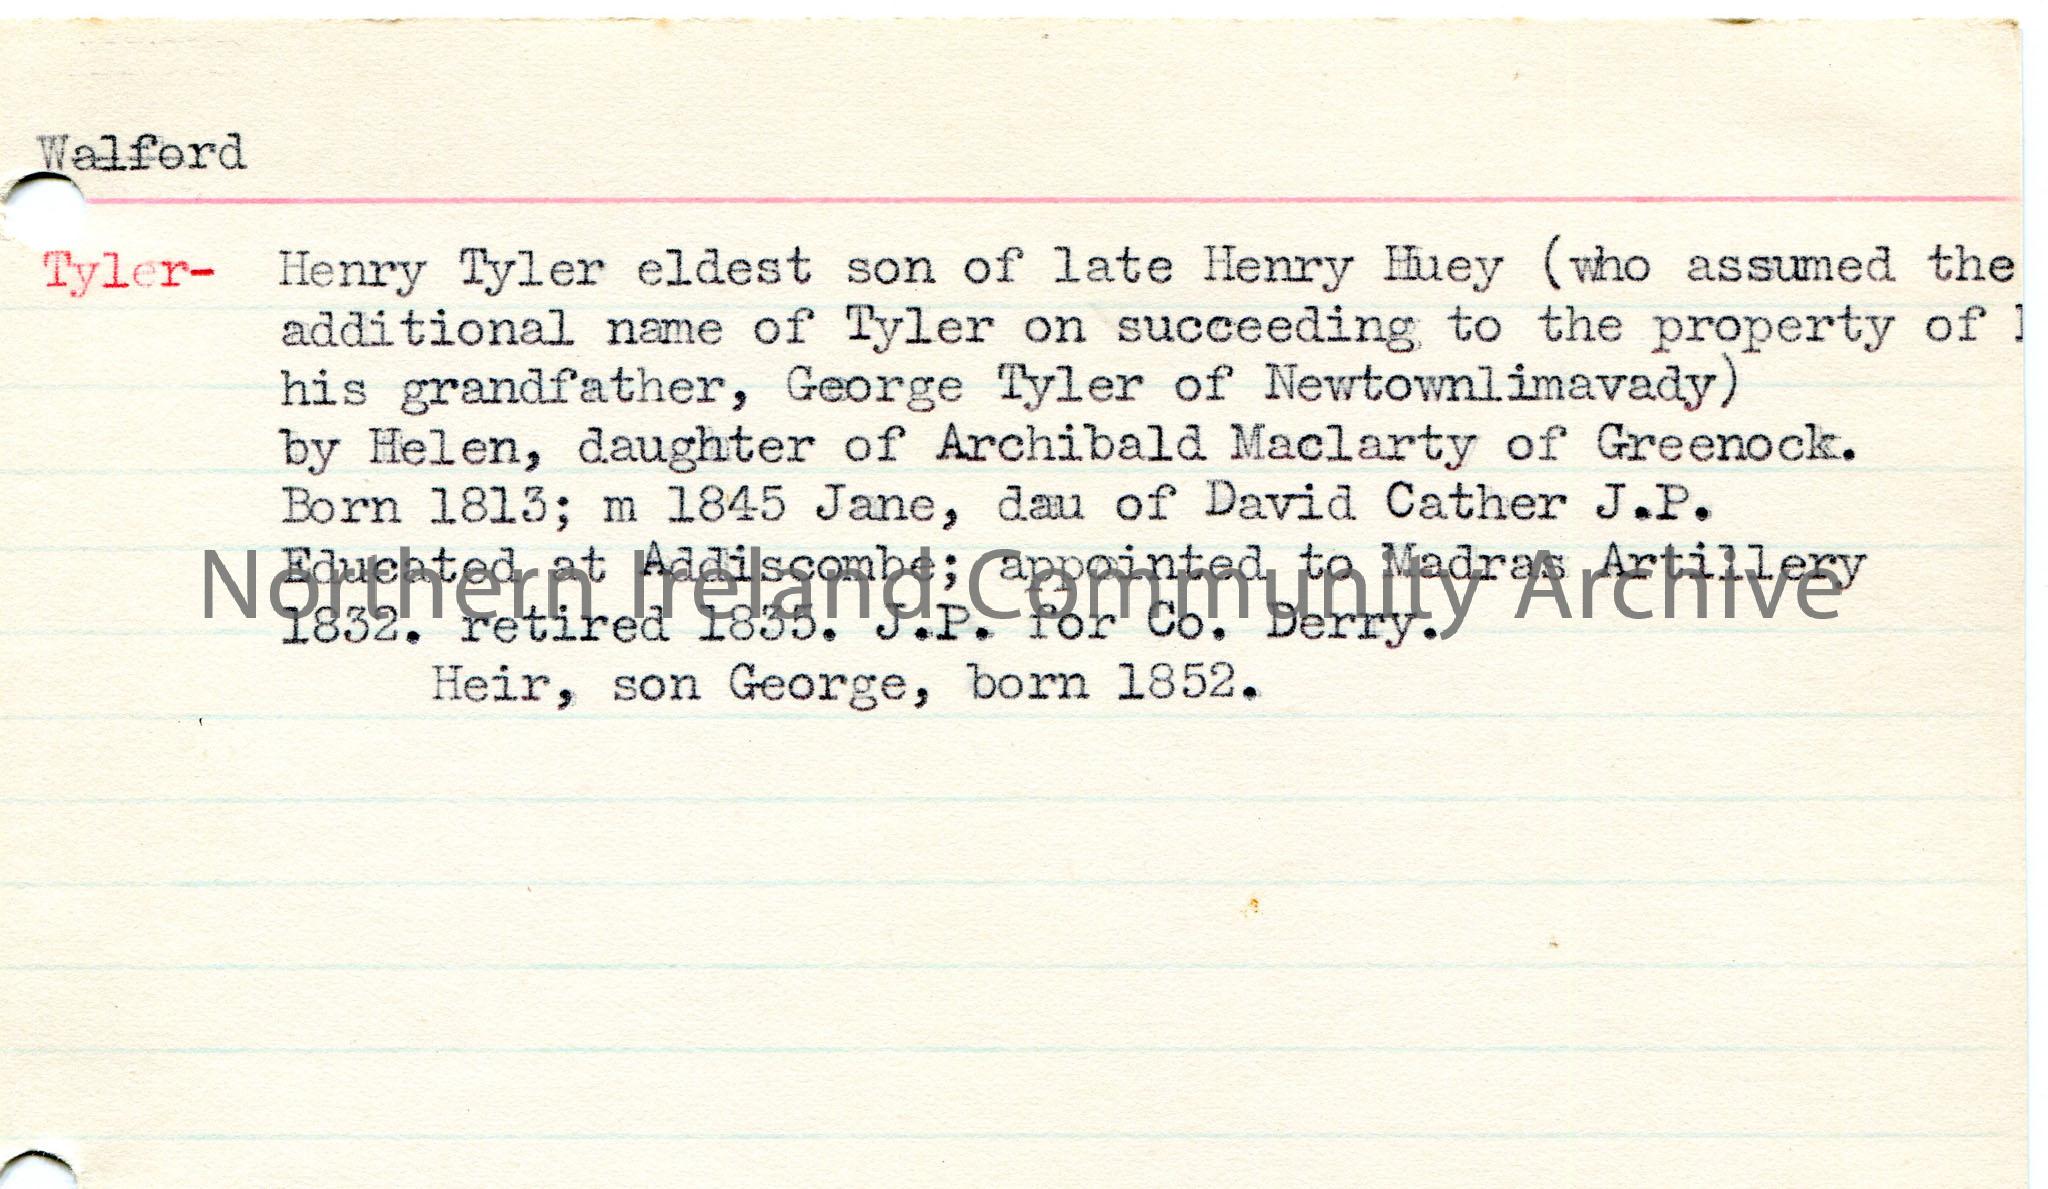 Walford
Tyler- Henry Tyler eldest son of late Henry Huey (who assumed the
additional name of Tyler on succeeding to the property of
his grandfather, George Tyler of Newtownlimavady)
by Helen, daughter of Archibald Maclarty of Greenock.
Born 1813; m 1845 Jane, dau of David Cather J.P.
Educated at Addiscombe; appointed to Madras Artillery
Northern Ireland Community Archive
1832. retired 1835. J.P. for Co. Derry.
Heir, son George, born 1852.